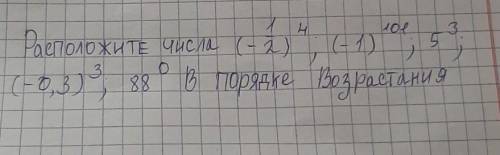 Расположите числа (-1/2)^4; (-1)^101; 5^3;
(-0,3)^3, 88^0 В порядке Возрастания